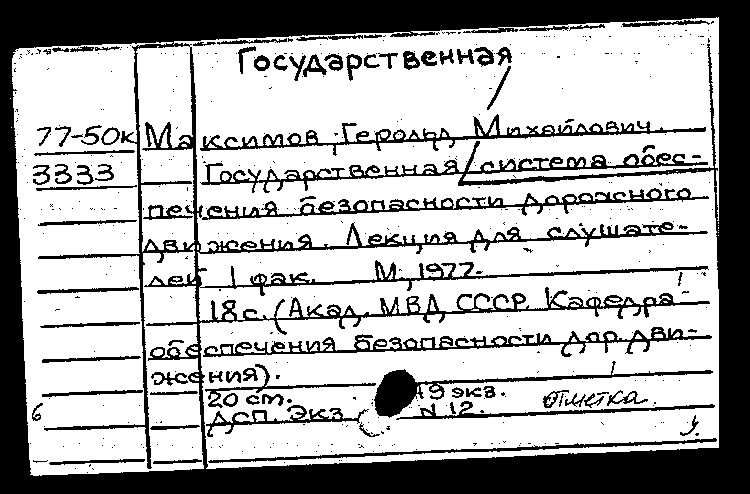 Государственная
77-50к Максимов, Герольд Михайлович.
3333 Государственная система обес-
печения безопасности дорожного
движения. Лекция для слушате-
лей 1 фак. М., 1977.
18 с. (Акад. МВД СССР. Кафедра
обеспечения безопасности дор. дви-
жения).
20 см. 49 экз.
6 ДСП. Экз. N 12. отметка.